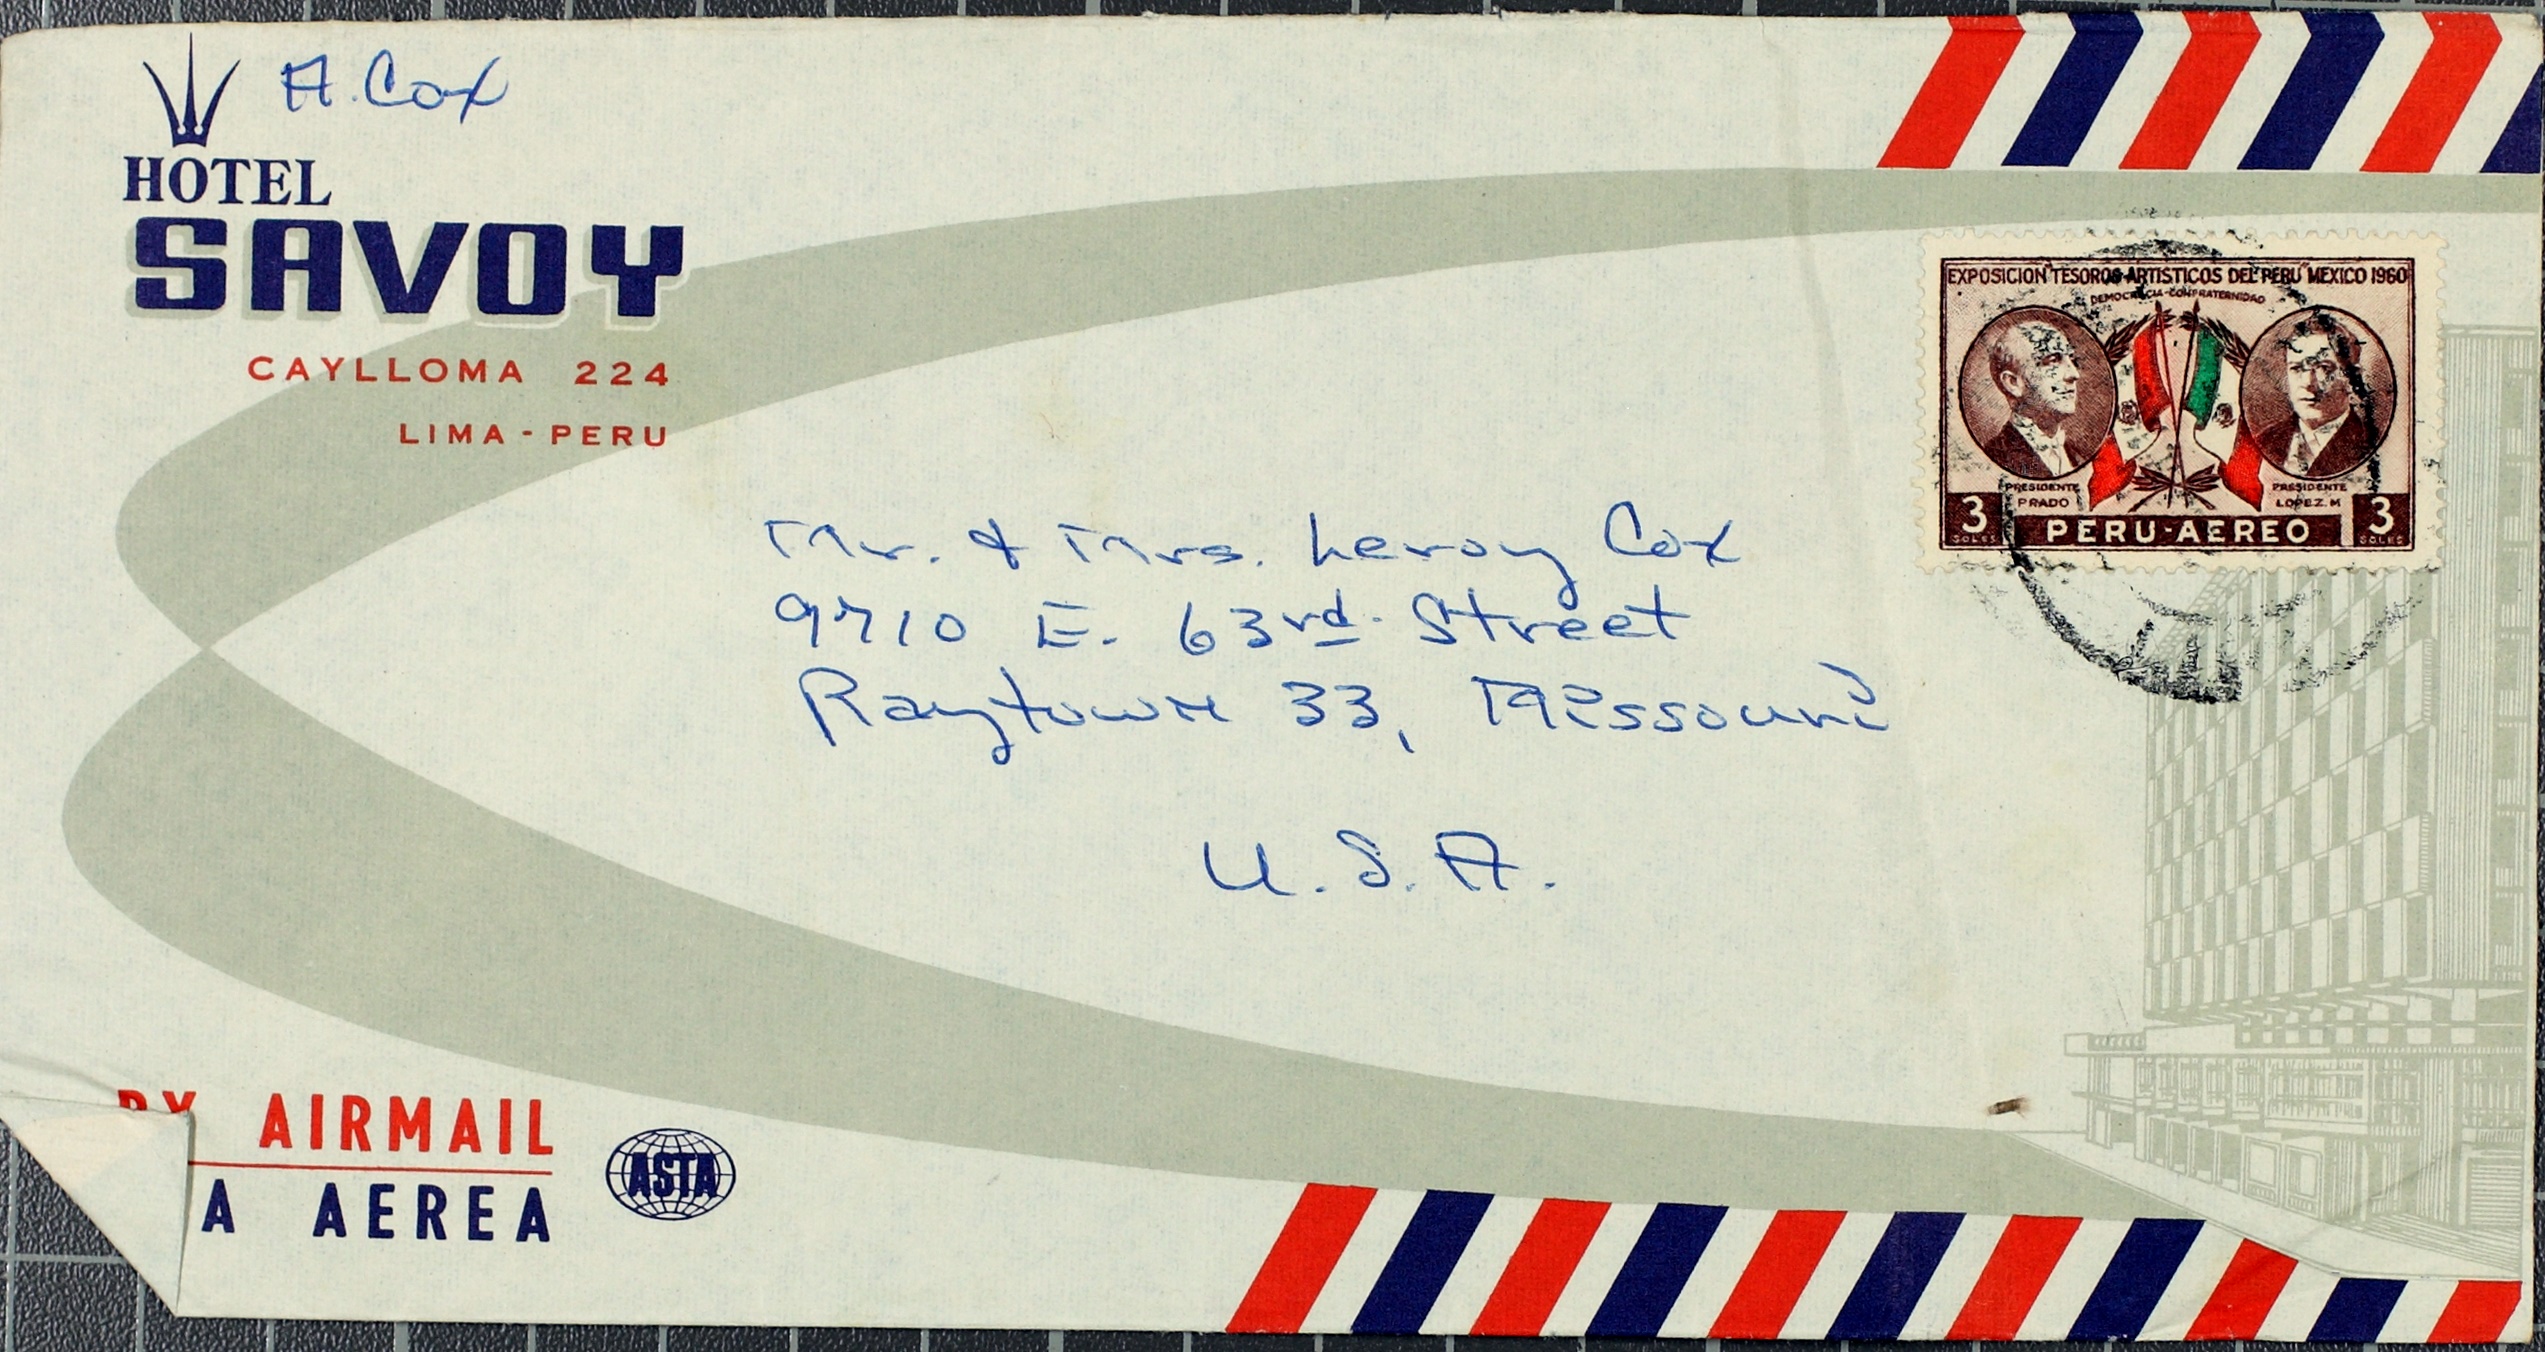 A. Cox
HOTEL
SAVOY
CAYLLOMA 224
LIMA - PERU
EXPOSICION "TESOROS ARTISTICOS DEL PERU" MEXICO 1960
DEMOCRACIA-CONFRATERNIDAD
PRESIDENTE
PRADO
PRESIDENTE
LOPEZ. M
3
SOLES
PERU-AEREO
3
SOLES
Mr. & Mrs. Leroy Cox
9710 E. 63rd. Street
Raytown 33, Missouri
U.S.A.
BY AIRMAIL
A AEREA
ASTA